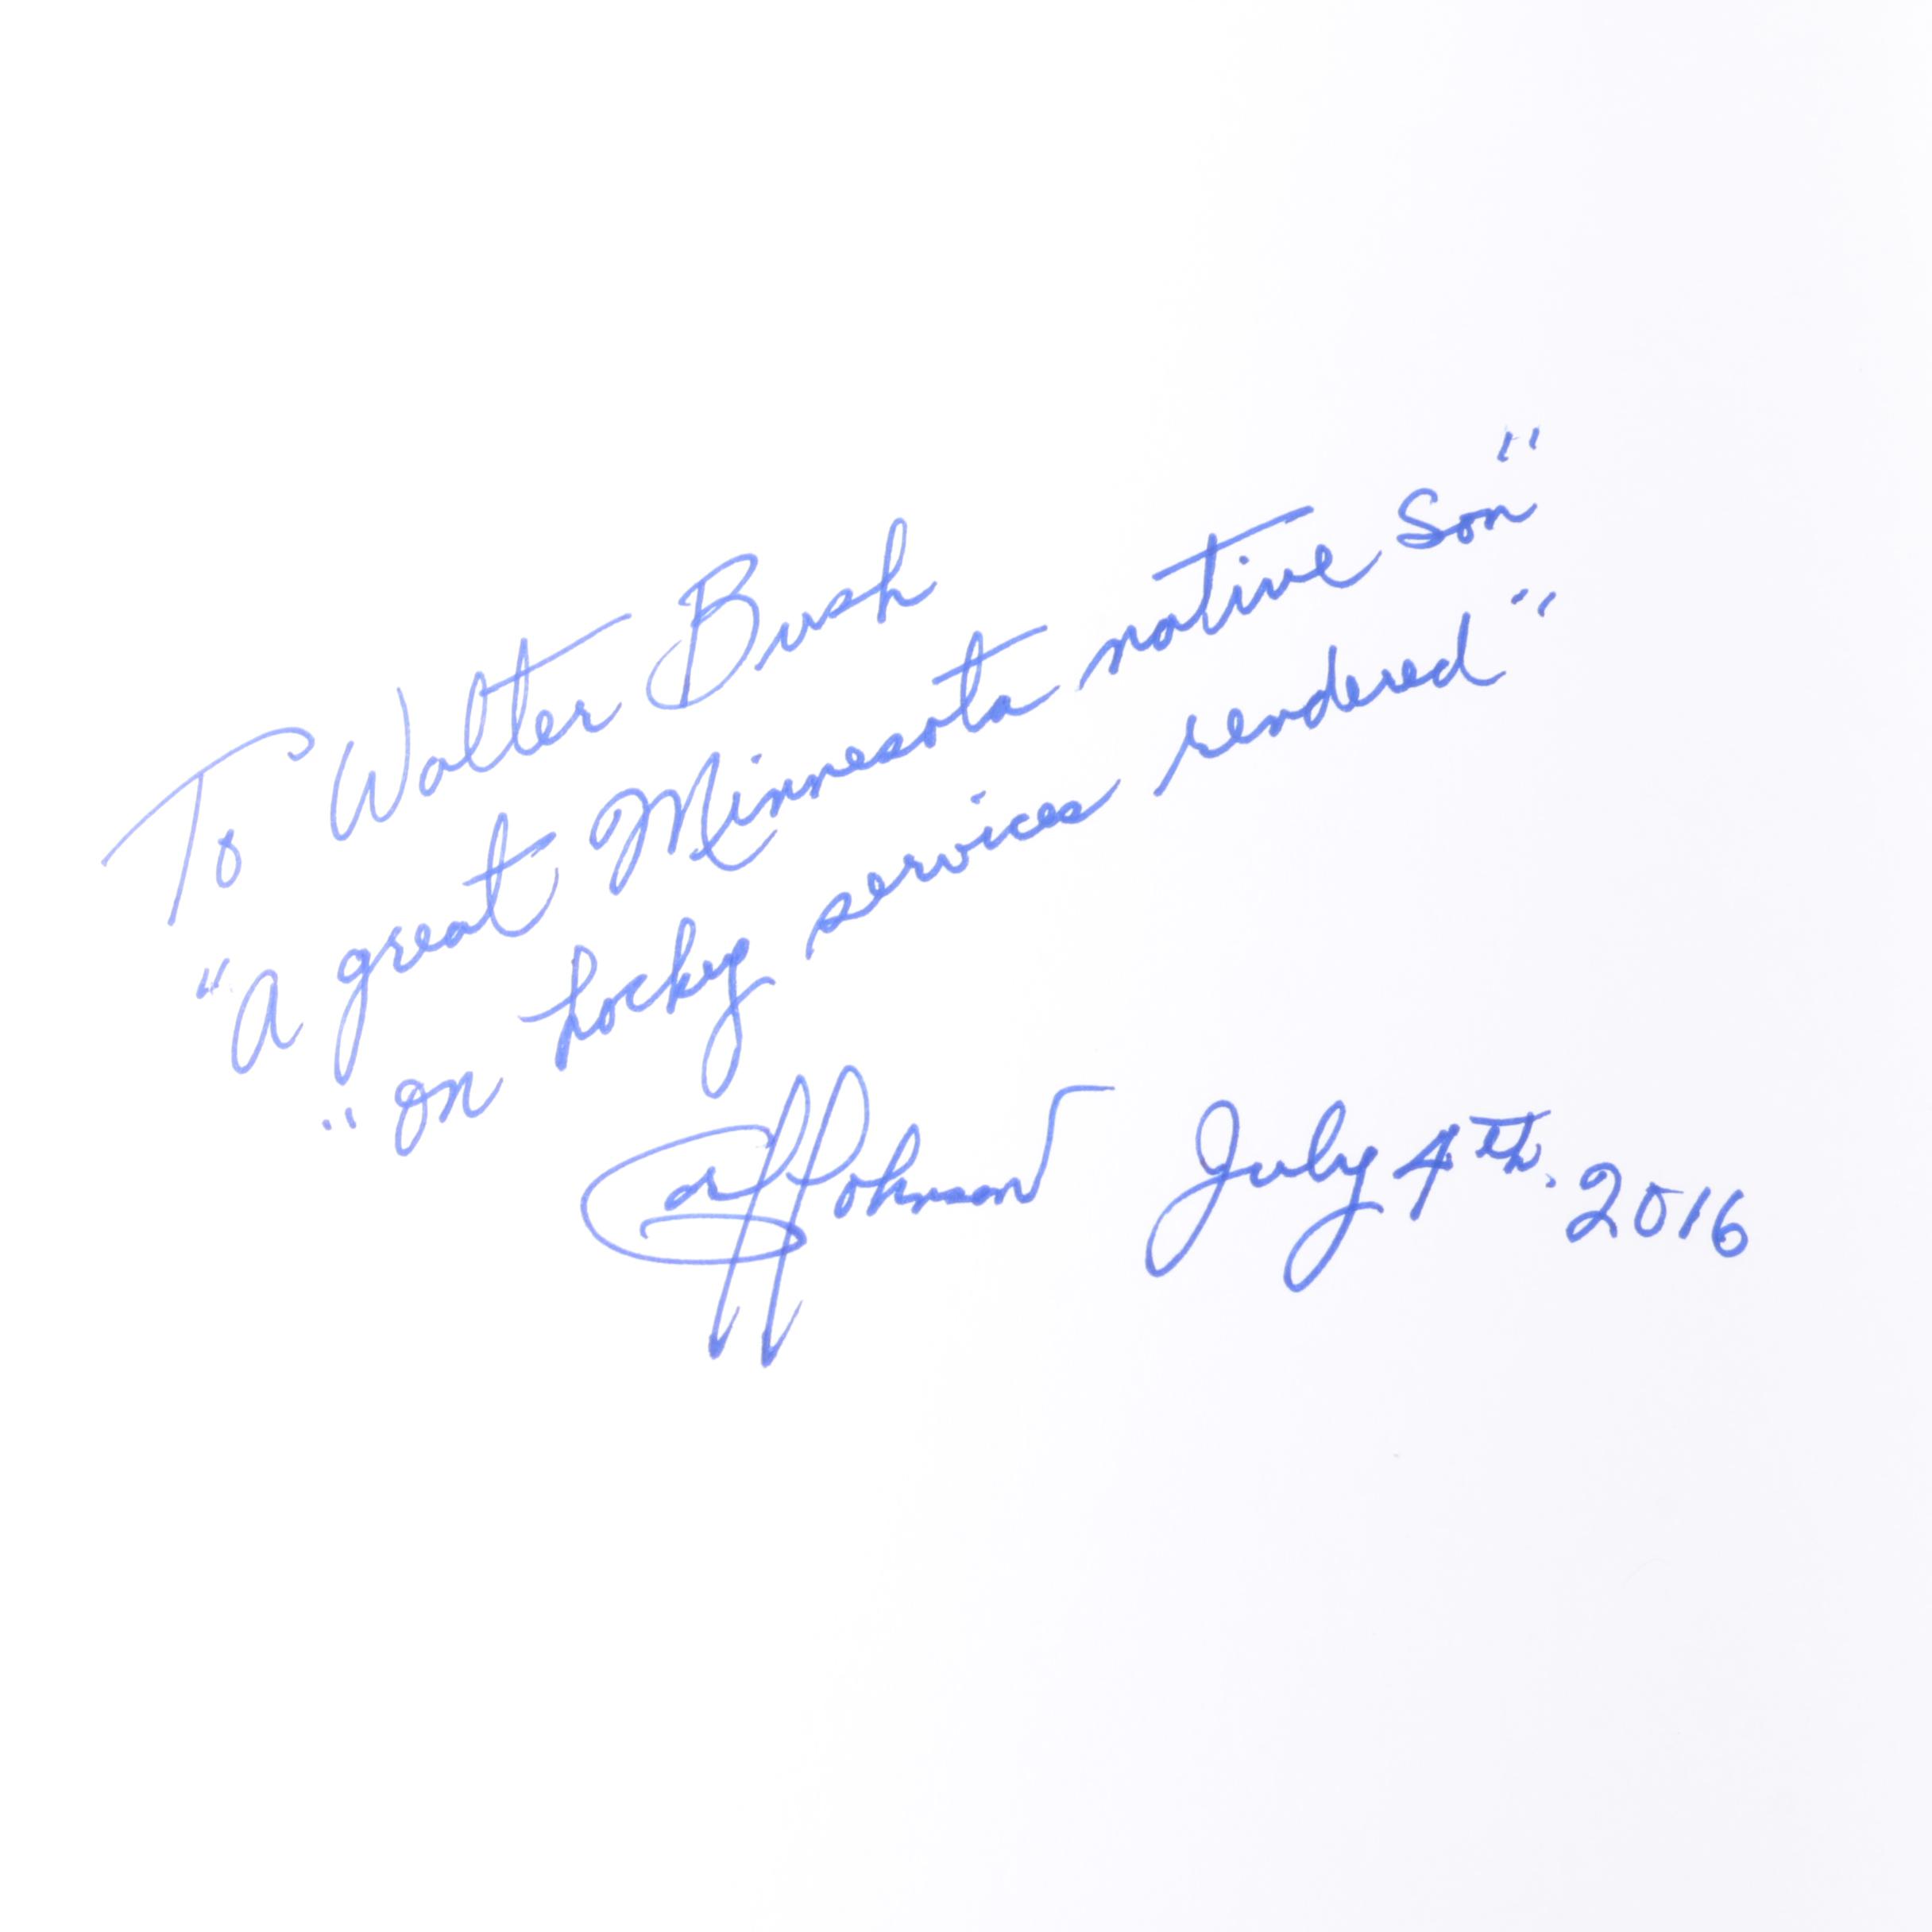 To Walter Bush
"A great Minnesota native Son"
"on hocky services rendered"
July 4th. 2016